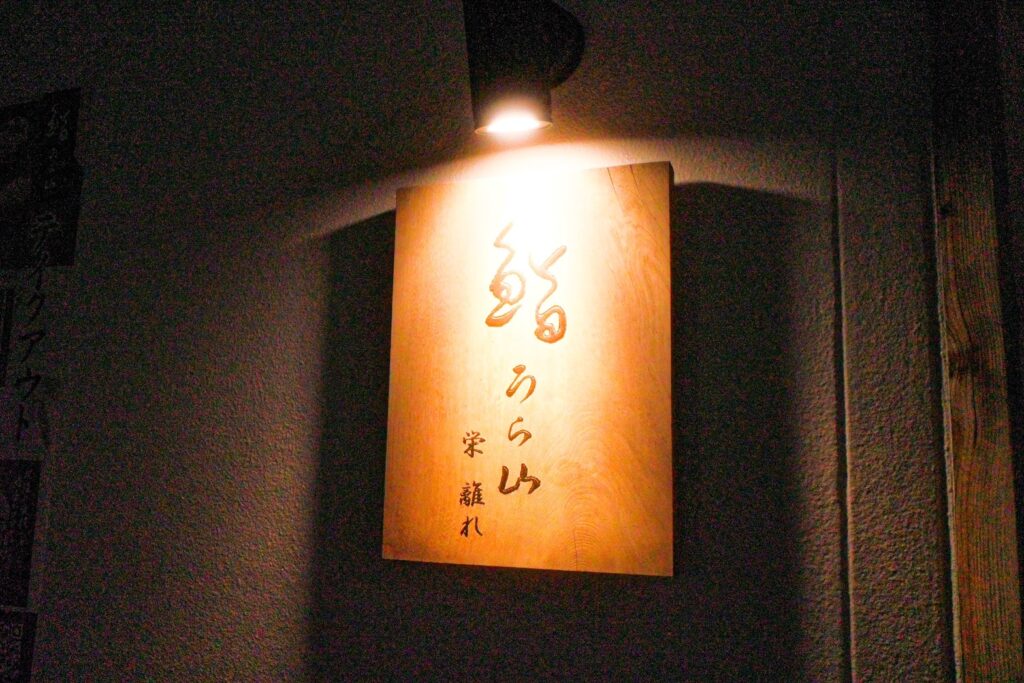 鮨
うら山
栄 離れ
テイクアウト